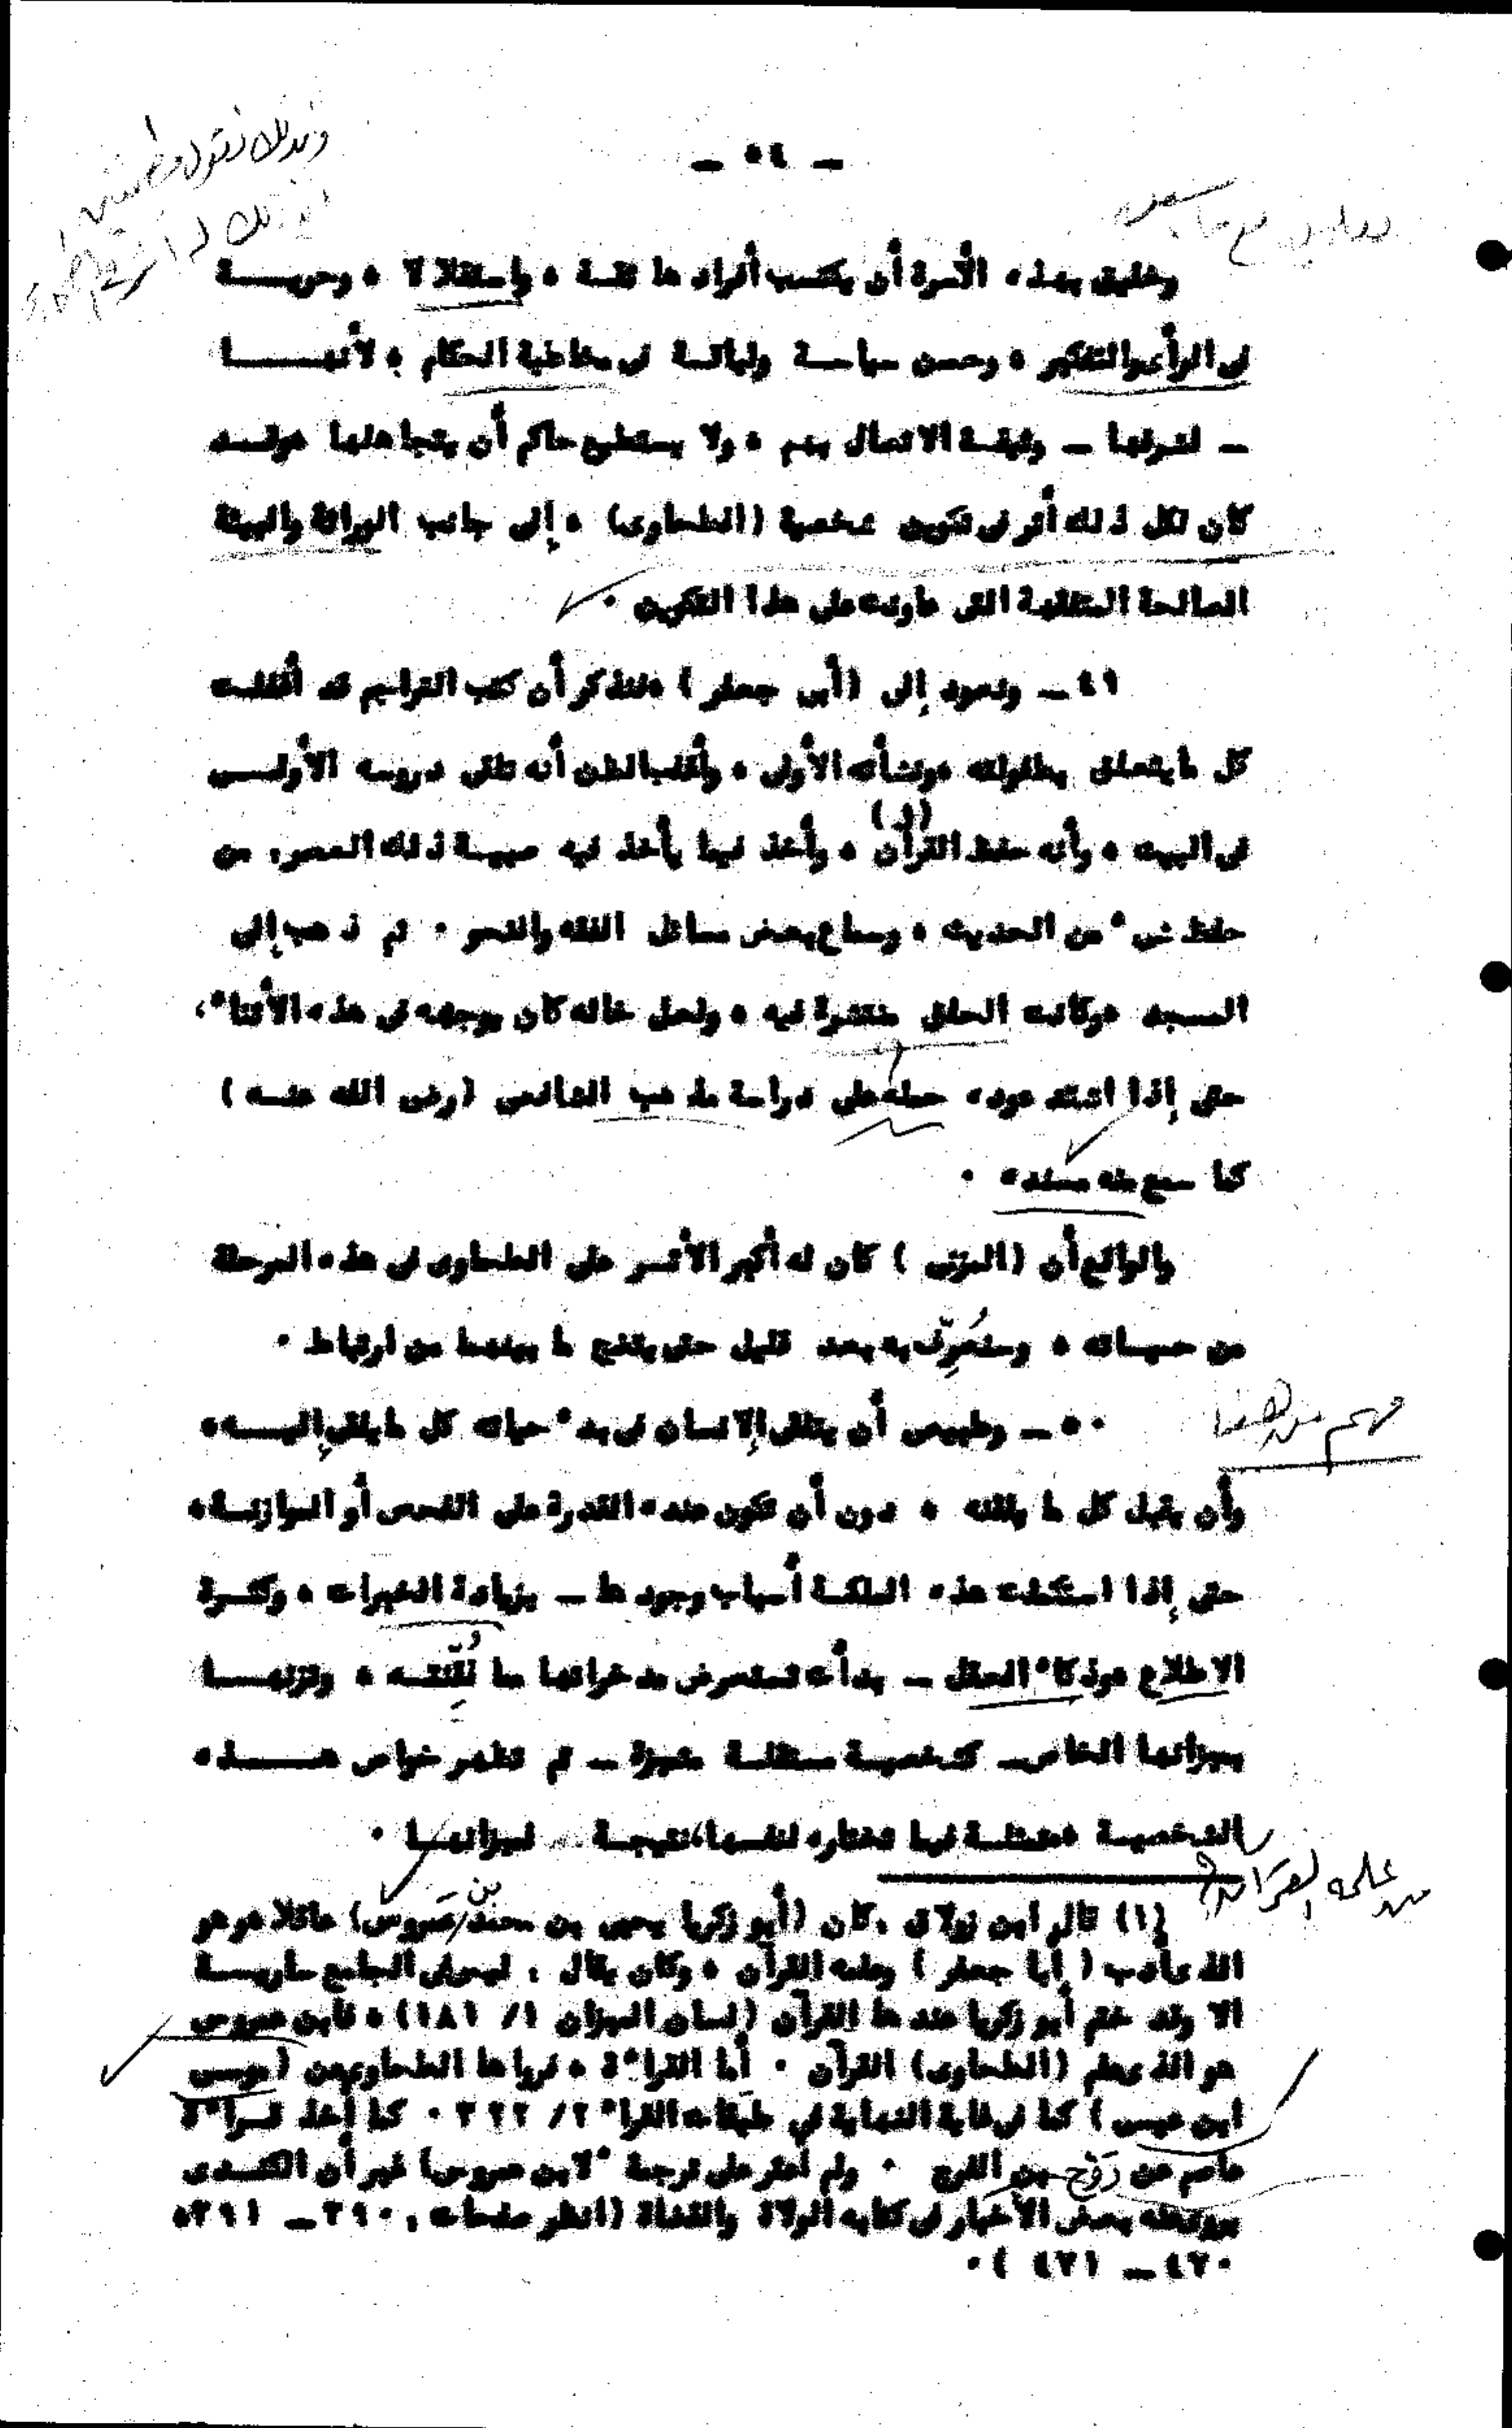 - ٥٤ -
وخليق بهذه الأسرة أن يكتسب أفرادها ثقة ، واستقلالا ، وحريـــة
فى الرأى والتفكير ، وحسن سياسة ولباقة فى مخاطبة الحكام ، لأنهـــا
- لشرفها - وثيقة الاتصال بهم ، ولا يستطيع حاكم أن يتجاهلها ، وقــد
كان لكل ذلك أثر فى تكوين شخصية (الطحاوى) ، إلى جانب الوراثة والبيئة
الصالحة المثقفة التى عاونت على هذا التكوين .
٤٩ - ونعود إلى (أبى جعفر) ، فنذكر أن كتب التراجم قد أغفلت
كل ما يتعلق بطفولته ونشأته الأولى ، وأغلب الظن أنه تلقى دروسه الأولــى
فى البيت ، وأنه حفظ القرآن (١) ، وأخذ فيما يأخذ فيه صبية ذلك العصر، من
حفظ شىء من الحديث ، وسماع بعض مسائل الفقه والنحو . ثم ذهب إلى
المسجد ، وكانت الحلق منتشرة فيه ، ولعل خاله كان يوجهه فى هذه الأثناء ،
حتى إذا اشتد عوده حمله على دراسة مذهب الشافعى (رضى الله عنــه)
كما سمع منه مسنده .
والواقع أن (المزنى) كان له أكبر الأثــر على الطحاوى فى هذه المرحلة
من حيــاته ، وسنُعرِّف به بعد قليل حتى يتضح ما بينهما من ارتباط .
مهم من هنا
٥٠ - وطبيعى أن يتلقى الإنسان فى بدء حياته كل ما يلقى إليـــه ،
وأن يقبل كل ما يلقنه ، دون أن تكون عنده القدرة على الفحص أو الموازنــة ،
حتى إذا استكملت هذه الملكة أسباب وجودها - بزيادة الخبرات ، وكثــرة
الاطلاع ، وذكاء العقل - بدأت تستعرض مدخراتها مما لُقِّنتــه ، وتزنهـــا
بميزانها الخاص - كشخصية مستقلة متميزة - ثم تظهر خواص هــــذه
الشخصية ممثلة فيما تختاره لنفسها ، نتيجة لميزانهــا .
(١) قال ابن زولاق : كان (أبو زكريا يحيى بن محمد بن عَمروس) عاقلا ، وهو
الذى أدب (أبا جعفر) وعلمه القرآن ، وكان يقال : ليس فى الجامع ساريــة
إلا وقد ختم أبو زكريا عندها القرآن (لسان الميزان ١ / ١٨١) ، فابن عمروس
هو الذى علم (الطحاوى) القرآن . أما القراءة ، فرواها الطحاوى عن (موسى
ابن عيسى) كما فى غاية النهاية فى طبقات القراء ٢ / ٣٢٢ . كما أخذ قــراءة
عاصم عن رَوْح بن الفرج . ولم أعثر على ترجمة (لابن عمروس) غير أن الكنــدى
يروى عنه بعض الأخبار فى كتابه الولاة والقضاة (انظر صفحات : ٣٩٠ - ٣٩١ ،
٤٧٠ - ٤٧١ ) .